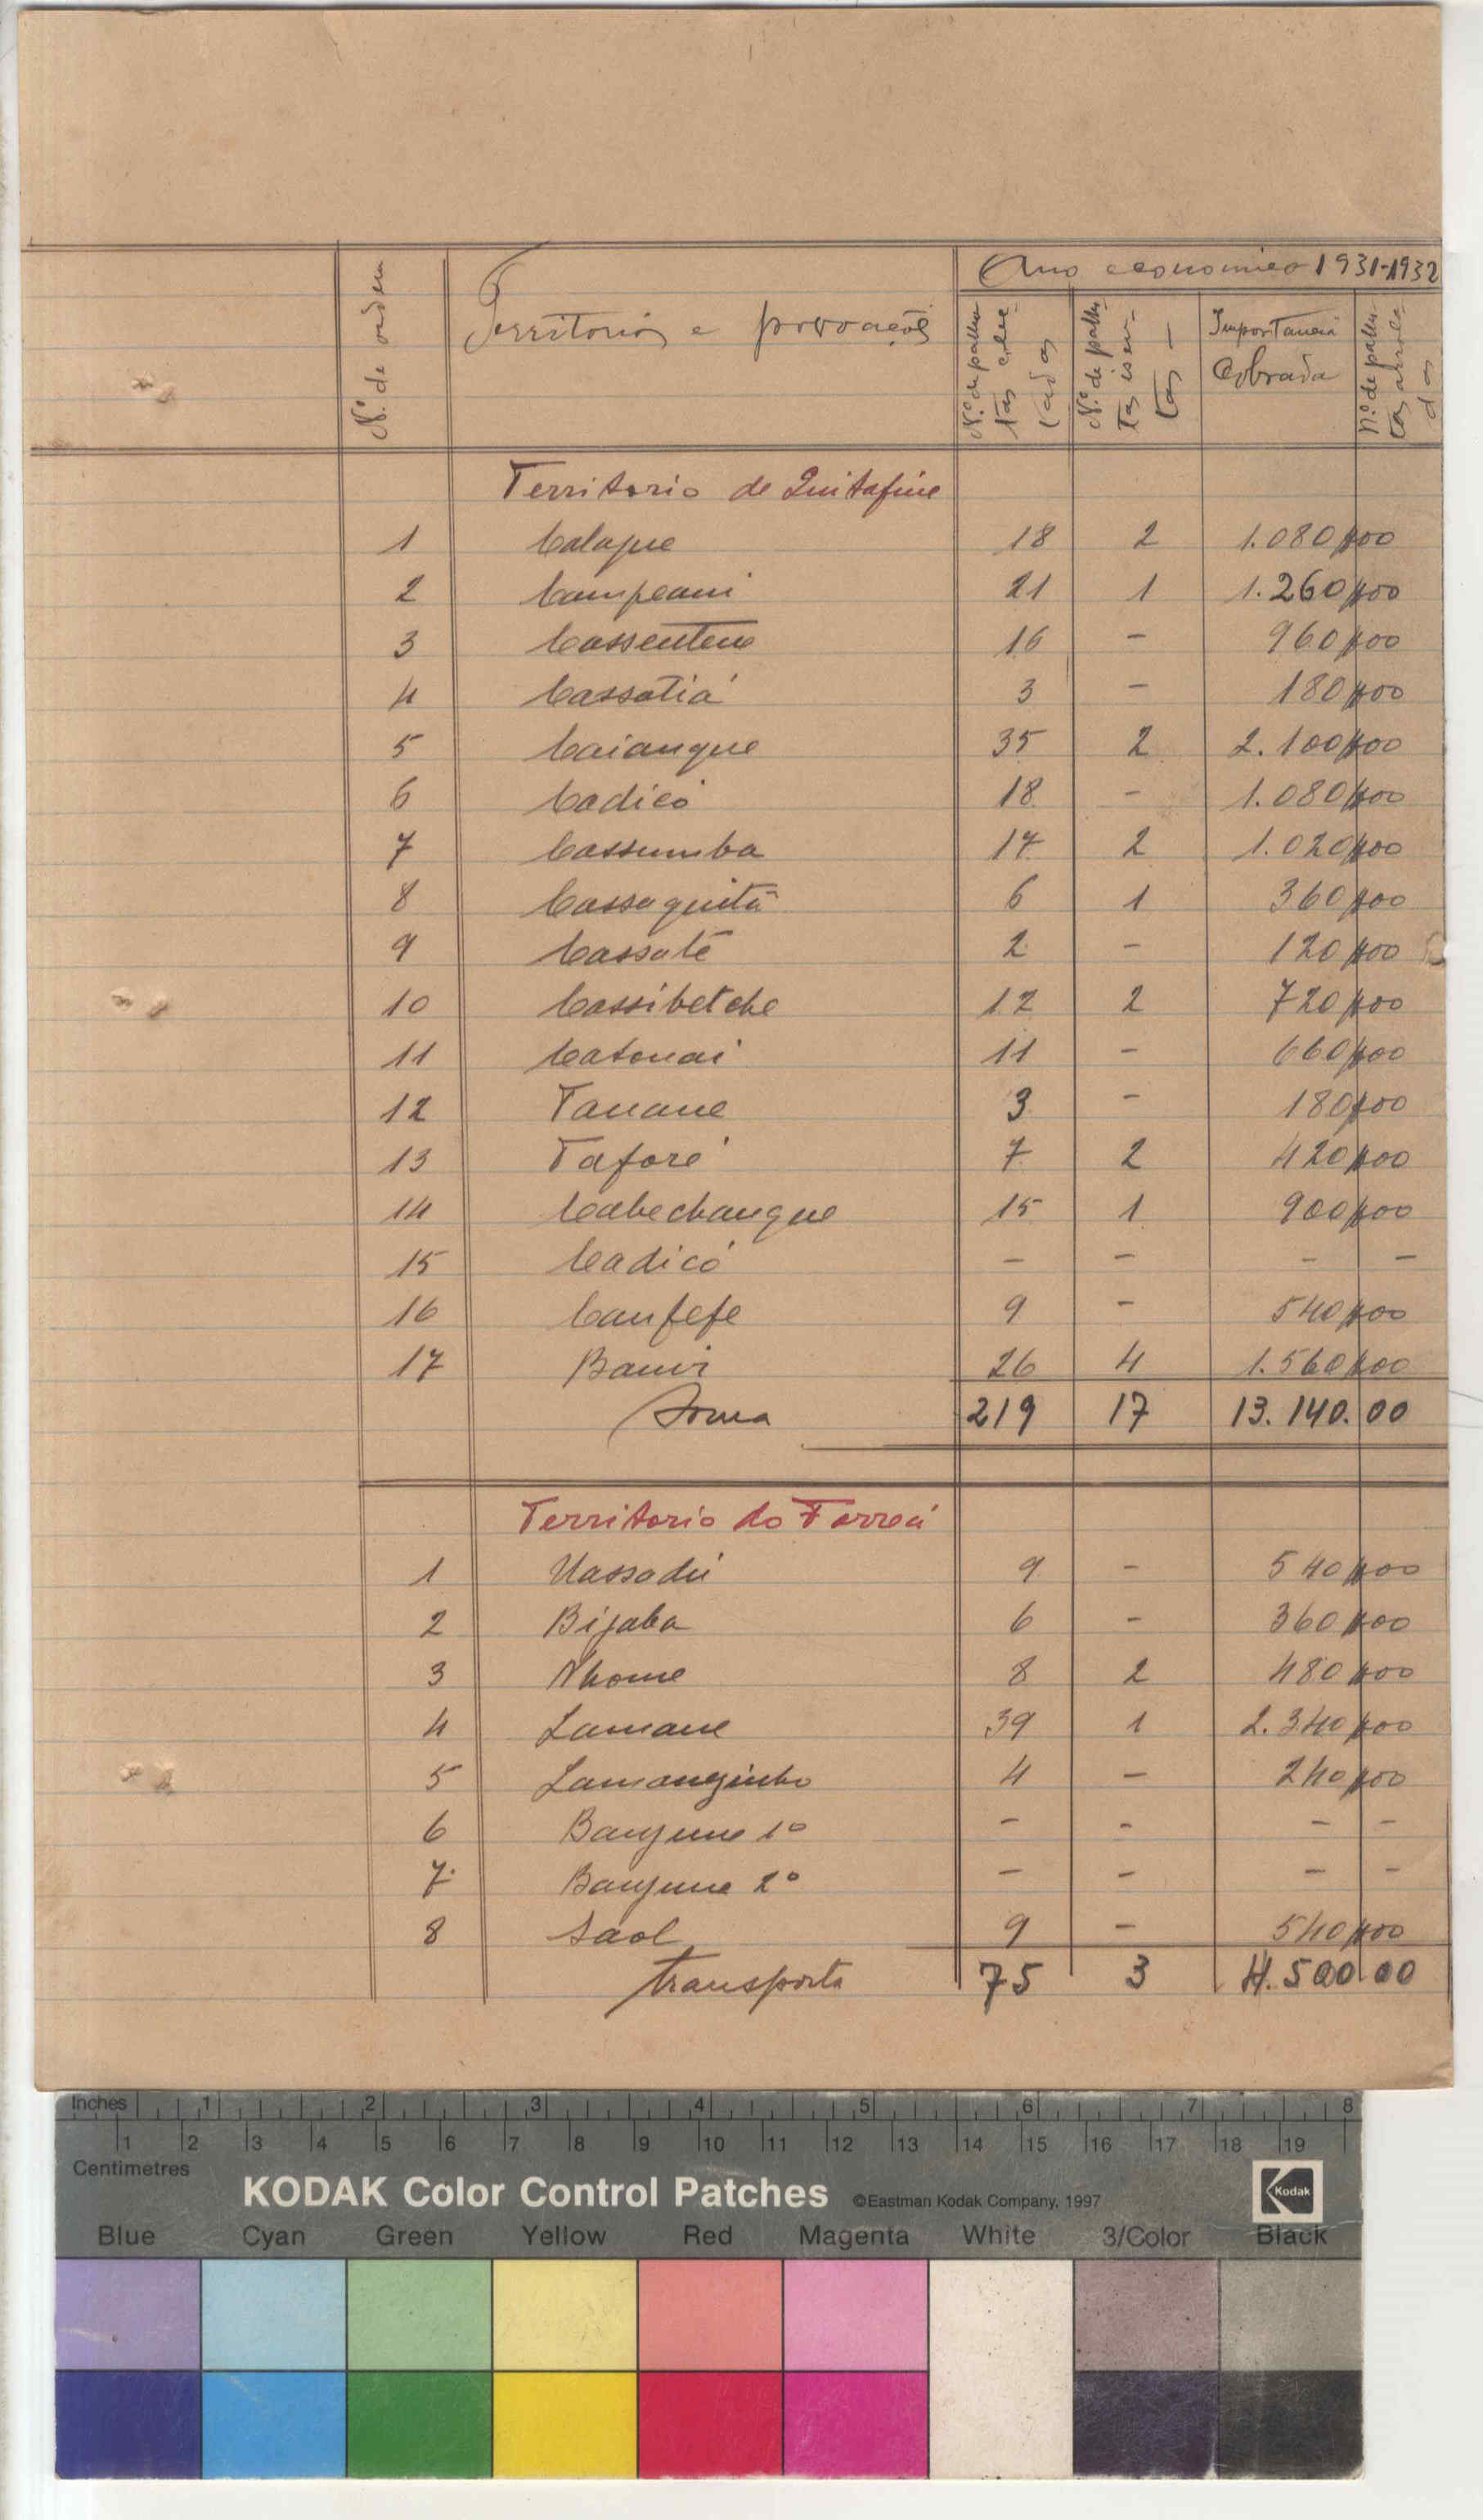 Ano economico 1931-1932
N.º de ordem
Territorios e povoações
N.º de palhotas colectadas
N.º de palhotas isentas -
Importancia Cobrada
n.º de palhotas arroladas
Territorio de Quitafine
1 Calaque 18 2 1.080$00
2 Campeani 21 1 1.260$00
3 Cassentene 16 - 960$00
4 Cassotiá 3 - 180$00
5 Caianque 35 2 2.100$00
6 Cadicó 18 - 1.080$00
7 Cassumba 17 2 1.020$00
8 Cassaquitã 6 1 360$00
9 Cassaté 2 - 120$00
10 Cassibetche 12 2 720$00
11 Catonai 11 - 660$00
12 Tanane 3 - 180$00
13 Taforé 7 2 420$00
14 Cabechanque 15 1 900$00
15 Cadicó - - - -
16 Canfefe 9 - 540$00
17 Banir 26 4 1.560$00
Soma 219 17 13.140.00
Territorio do Forreá
1 Uassadú 9 - 540$00
2 Bijaba 6 - 360$00
3 Nhome 8 2 480$00
4 Lamane 39 1 2.340$00
5 Lamanezinho 4 - 240$00
6 Banjune 1º - - - -
7 Banjune 2º - - - -
8 Saol 9 - 540$00
Transporta 75 3 4.500 00
Inches 1 2 3 4 5 6 7 8
1 2 3 4 5 6 7 8 9 10 11 12 13 14 15 16 17 18 19
Centimetres
KODAK Color Control Patches ©Eastman Kodak Company, 1997 Kodak
Blue Cyan Green Yellow Red Magenta White 3/Color Black